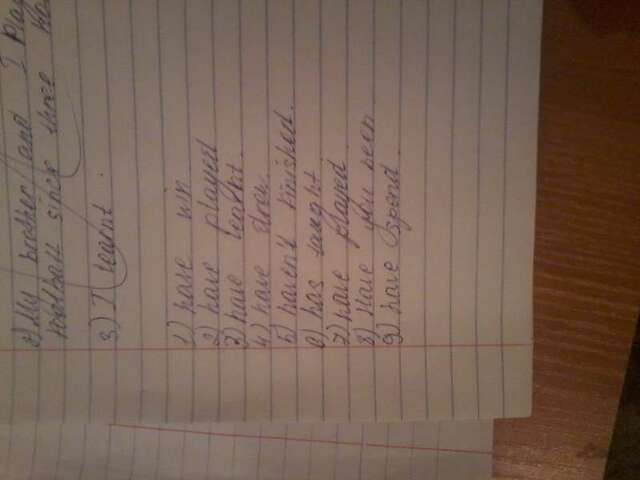 2) My brother and I play
football since three
3) I learnt
1) have win
2) have played
3) have learnt.
4) have drew.
5) haven't finished.
6) has taught
7) have played
8) Have you been
9) have spend.